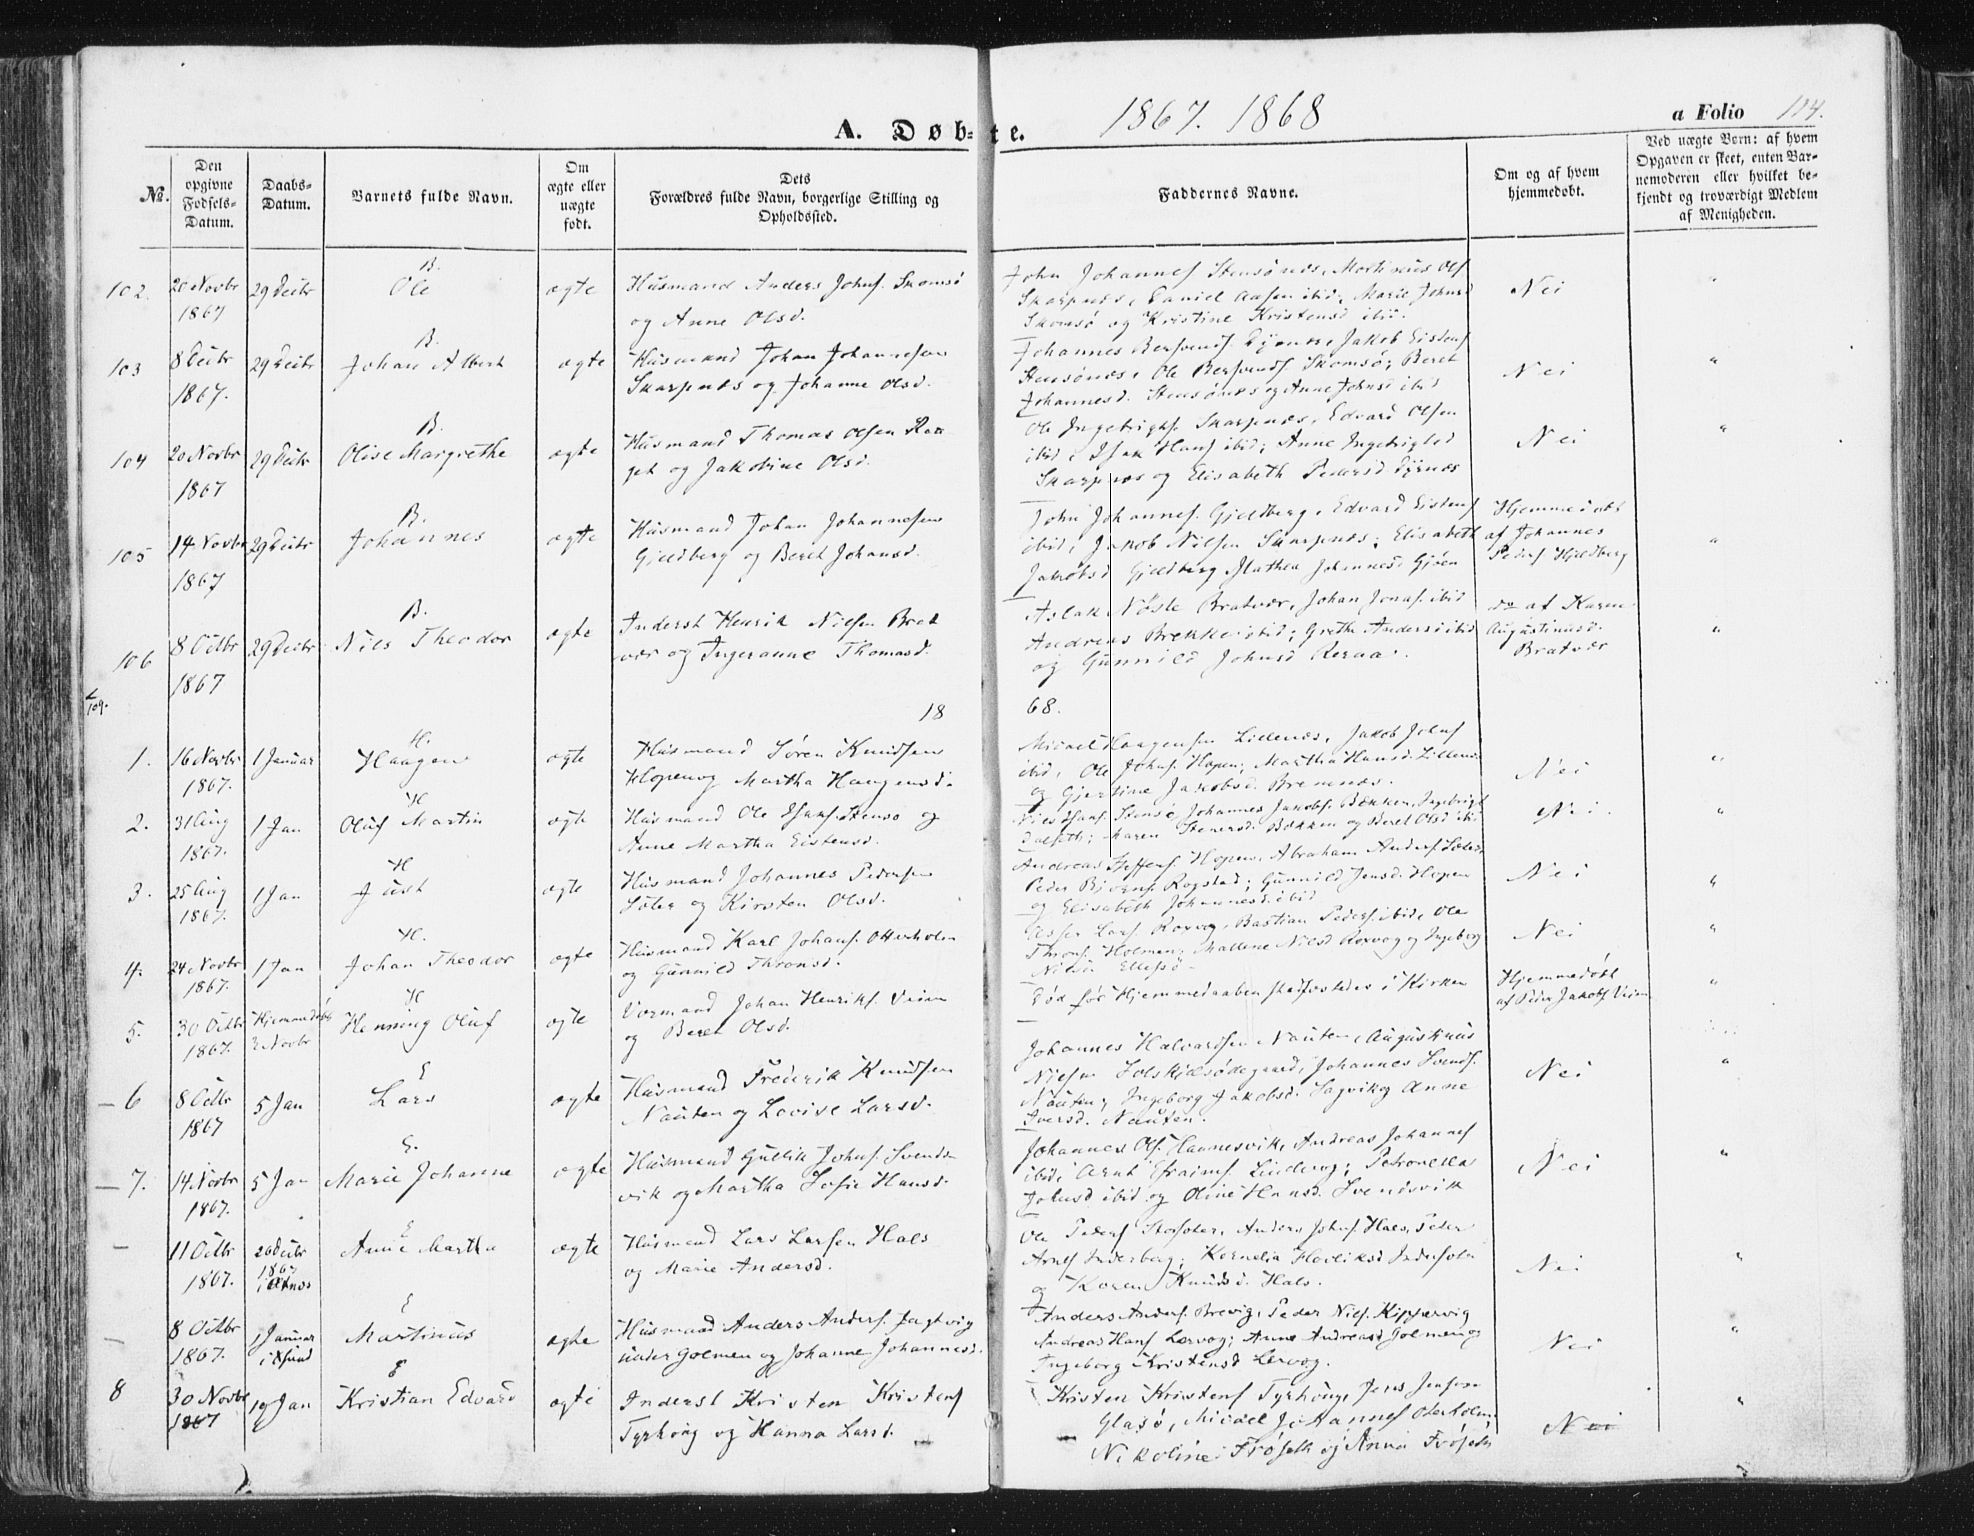 A. Døbte.
1867. 1868
a Folio 114.
№.
Den opgivne Fødsels-Datum.
Daabs-Datum.
Barnets fulde Navn.
Om ægte eller uægte født.
Dets Forældres fulde Navn, borgerlige Stilling og Opholdssted.
Faddernes Navne.
Om og af hvem hjemmedøbt.
Ved uægte Børn: af hvem Opgaven er skeet, enten Barnemoderen eller hvilket bekjendt og troværdigt Medlem af Menigheden.
B.
102. 20 Novbr 29 Decbr Ole ægte Husmand Anders Johns. Skomsø
1867 og Anne Olsd.
John Johannes Stensønæs, Martinus Ols
Skarpnæs, Daniel Aasen ibid; Marie Johnsd
Skomsø og Kristine Kristensd ibid.
Nei "
B.
103 8 Decbr 29 Decbr Johan Albert ægte Husmand Johan Johannesen
1867. Skarpnæs og Johanne Olsd.
Johannes Jakob Eistens
Stensønæs, Ole Skomsø; Beret
Johannesd. Stensønæs og Anne Johnsd ibid
Nei "
B.
104 20 Novbr 29 Decbr Olise Margrethe ægte Husmand Thomas Olsen
1867 og Jakobine Olsd.
Ole Ingebrigts. Skarpnæs, Edvard Olsen
ibid, Isak Hans ibid; Anne Ingebrigtsd
Skarpnæs og Elisabeth Pedersd
Nei "
B.
105 14 Novbr 29 Decbr Johannes ægte Husmand Johan Johannesen
1867 Gjeldberg og Beret Johansd.
John Johannes. Gjeldberg, Edvard Eistens
ibid, Jakob Nilsen Skarpnæs; Elisabeth
Jakobsd Gjeldberg, Mathea Johannesd Gjøen
Hjemmedøbt
af Johannes
Peders Gjeldberg "
B.
106 8 Octbr 29 Decbr Nils Theodor ægte Inderst Henrik Nilsen Brat
1867 vær og Ingeranna Thomasd.
Aslak Nøste Bratvær, Johan Jonas. ibid
Andreas Brekke ibid; Grethe Andersd ibid
og Gunnild Johnsd
do af Karen
Augustinusd.
Bratvær "
109.
18 68.
H.
1. 16 Novbr 1 Januar Haagen ægte Husmand Søren Knudsen
1867. Hopen og Martha Haagensd.
Micael Haagensen Lillenæs, Jakob Johns
ibid, Ole Johns. Hopen; Martha Hansd. Lillenæs
og Gjertine Jakobsd. Bremnæs.
Nei "
H
2. 31 Aug 1 Jan Oluf Martin ægte Husmand Ole Isaks. Stensø og
1867. Anne Martha Eistensd.
Nils Isaks. Stensø, Johannes Jakobs. Bækken, Ingebrigt
Karen Stenersd. Bækken og Beret Olsd ibid
Nei. "
H
3. 25 Aug 1 Jan Just ægte Husmand Johannes Pedersen
1867. Sæter og Kirsten Olsd.
Andreas Steffens. Hopen, Abraham Anders. Sæter,
Peder Bjørns. Rogstad; Gunnild Jensd. Hopen
og Elisabeth Johannesd. ibid
Nei "
H.
4. 24 Novbr 1 Jan Johan Theodor ægte Husmand Karl Johans. Otterholm
1867. og Gunnild Thronsd.
Lars Roxvog, Bastian Peders. ibid, Ole
Throns. Holmen; Mallene Nilsd Roxvog og Ingeborg
Nilsd
Nei "
H
5. 30 Octbr Hjemmedøbt Henning Oluf ægte Vormand Johan Henriks. Veien
1867. 3 Novbr og Beret Olsd.
Død før Hjemmedaaben stadfæstedes i Kirken
Hjemmedøbt
af Peder Jakobs. Veien "
E
6 8 Octbr 5 Jan Lars ægte Husmand Frederik Knudsen
1867 Nauten og Lovise Larsd.
Johannes Halvardsen Nauten, Augustinus
Nilsen Solskjelsødegaard, Johannes Svends.
Nauten; Ingeborg Jakobsd. Sagvik og Anne
Iversd. Nauten.
Nei "
E.
7. 14 Novbr 5 Jan Marie Johanne ægte Husmand Gullik Johns. Svends-
1867. vik og Martha Sofie Hansd.
Johannes Ols. Hannesvik, Andreas Johannes
ibid, Arnt Efraims. Lindevog; Petronella
Johnsd ibid og Oline Hansd. Svendsvik
Nei "
E
11 Octbr 26 Decbr Anne Martha ægte Husmand Lars Larsen Hals
1867. 1867 og Marie Andersd.
i Ædnæs
Ole Peders Storsøter, Anders Johns. Hals, Peder
Arnts Inderberg; Kornelia Indersøter
og Karen Knudsd. Hals.
Nei "
E
8 Octbr 1 Januar Martinus ægte Husmand Anders Anders. Jagtvig
1867. under Golmen og Johanne Johannesd.
Anders Anders. Brevig, Peder Nils. Kippervig
Andreas Hans Lervog; Anne Andreasd Golmen og
Ingeborg Kristensd Lervog.
Nei "
E
8 30 Novbr 19 Jan Kristian Edvard ægte Inderst Kristen Kristens
1867 Tyrhoug og Hanna Larsd.
Kristen Kristens Tyrhoug, Jens Jensen
Glasø, Micael Johannes Oterholm;
Nikoline Frøseth og Anna Frøseth
Nei "